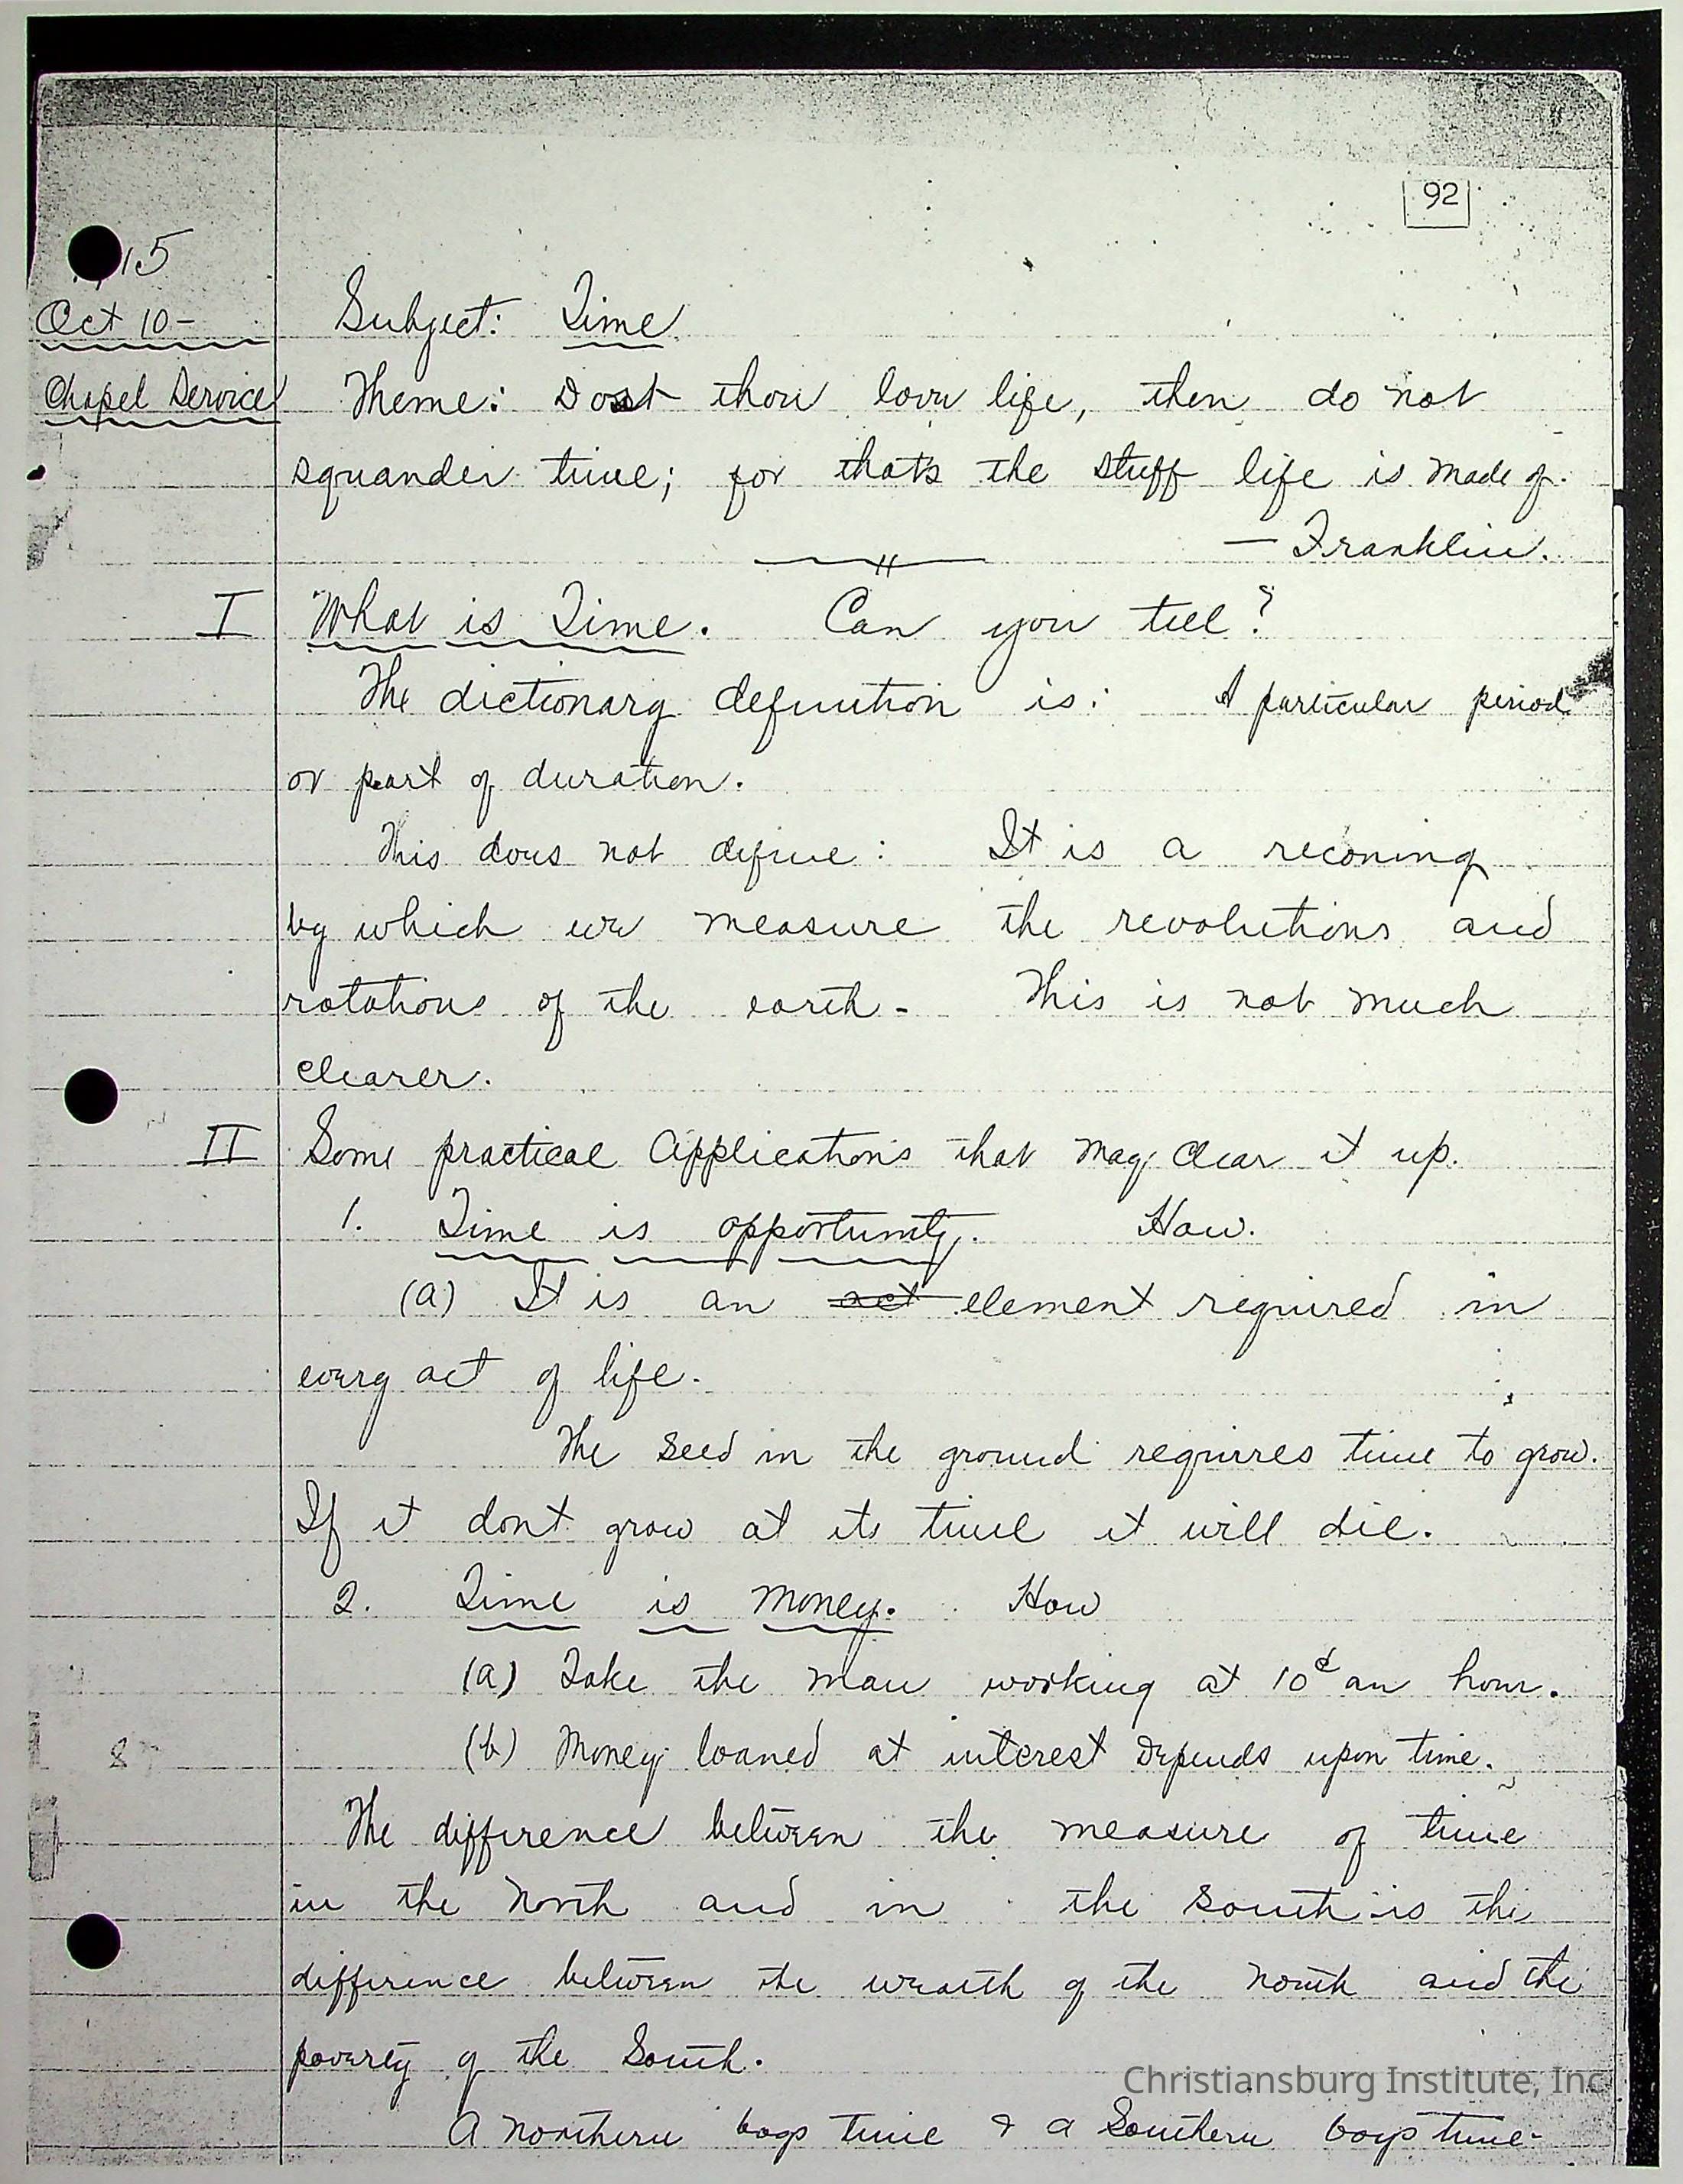 92
15
Oct 10-
Subject: Time
Chapel Service
Theme: Dost thou love life, then do not
squander time; for that's the stuff life is made of.
— Franklin.
I What is Time. Can you tell?
The dictionary definition is: A particular period
or part of duration.
This does not define: It is a reconing
by which we measure the revolutions and
rotations of the earth- This is not much
clearer.
II Some practical Applications that may clear it up.
1. Time is opportunity. How.
(a) It is an act element required in
every act of life.
The seed in the ground requires time to grow.
If it dont grow at its time it will die.
2. Time is money. How
(a) Take the man working at 10¢ an hour.
(b) Money loaned at interest Depends upon time.
The difference between the measure of time
in the North and in the South is the
difference between the wealth of the North and the
poverty of the South.
Christiansburg Institute, Inc
A Northern boys time & a Southern boys time-